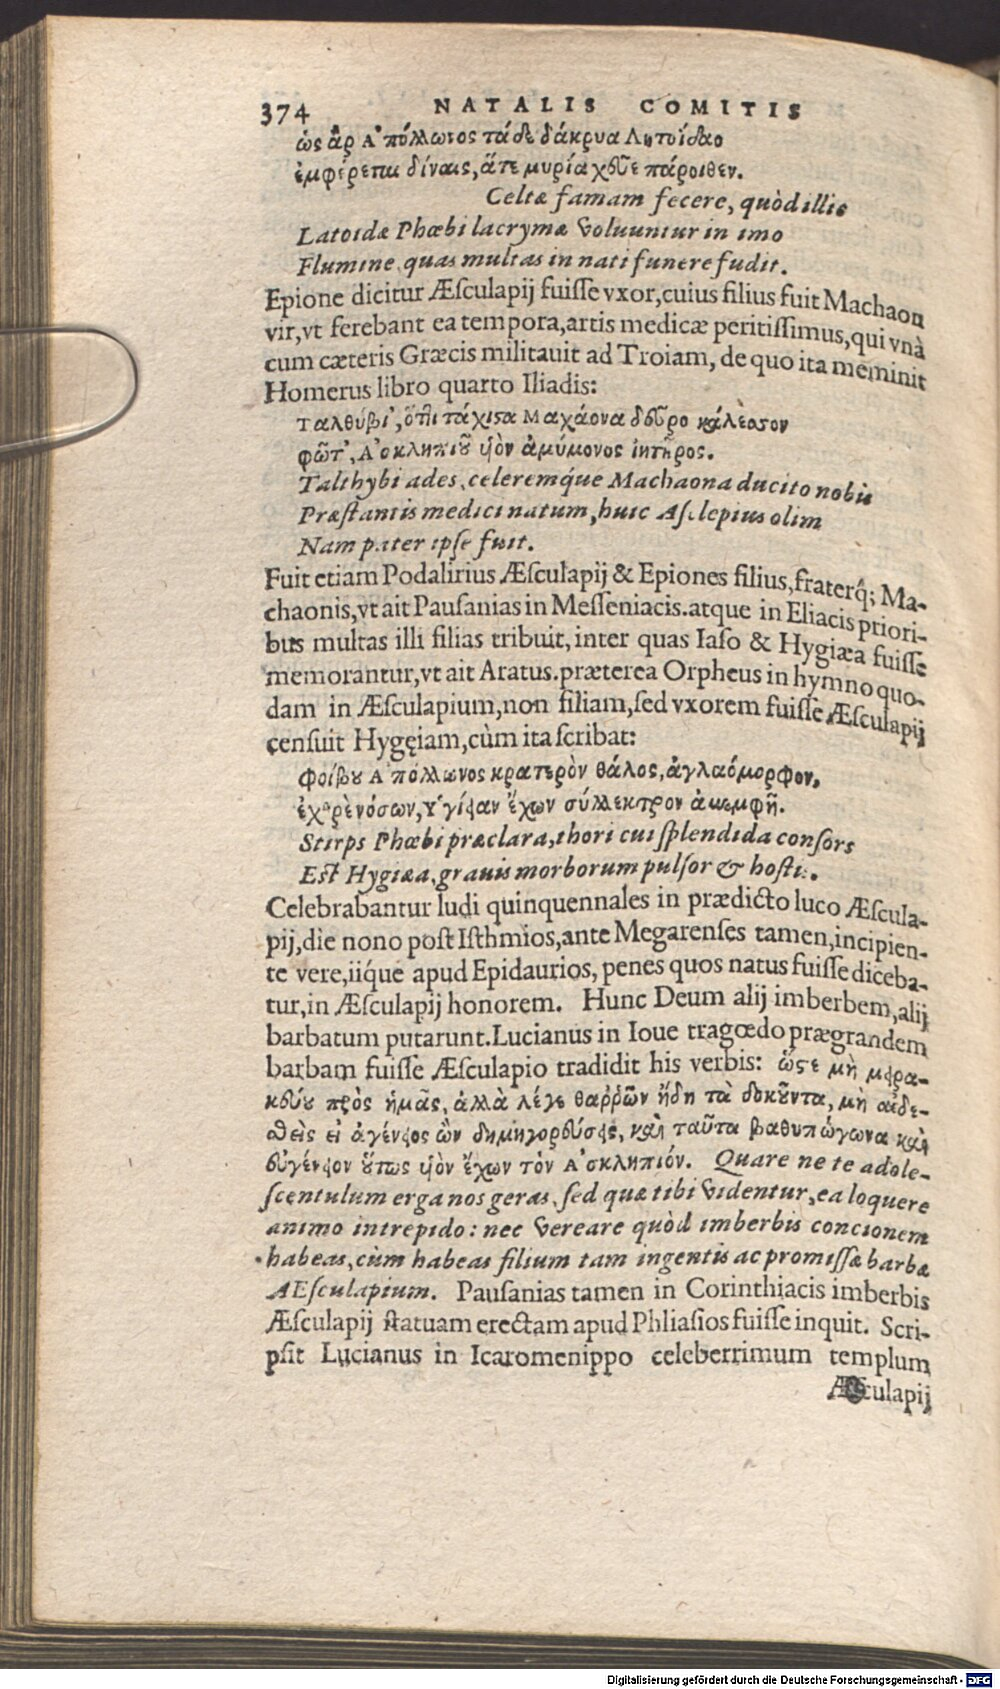 374 NATALIS COMITIS
ὡς ἄρ Ἀπόλλωνος τάδε δάκρυα Λητοΐδαο
ἐμφέρεται δίναις, ἅτε μυρία χεῦε πάροιθεν.
Celtæ famam fecere, quòd illis
Latoidæ Phœbi lacrymæ voluuntur in imo
Flumine, quas multas in nati funere fudit.
Epione dicitur Æſculapij fuiſſe vxor, cuius filius fuit Machaon
vir, vt ferebant ea tempora, artis medicæ peritiſſimus, qui vnà
cum cæteris Græcis militauit ad Troiam, de quo ita meminit
Homerus libro quarto Iliadis:
Ταλθύβι’, ὅττι τάχιστα Μαχάονα δεῦρο κάλεσσον
φῶτ’, Ἀσκληπιοῦ υἱὸν ἀμύμονος ἰητῆρος.
Talthybi ades, celeremq́ue Machaona ducito nobis
Præſtantis medici natum, huic Aſclepius olim
Nam pater ipſe fuit.
Fuit etiam Podalirius Æſculapij & Epiones filius, fraterq́; Ma-
chaonis, vt ait Pauſanias in Meſſeniacis. atque in Eliacis priori-
bus multas illi filias tribuit, inter quas Iaſo & Hygiæa fuiſſe
memorantur, vt ait Aratus. præterea Orpheus in hymno quo-
dam in Æſculapium, non filiam, ſed vxorem fuiſſe Æſculapij
cenſuit Hygęiam, cùm ita ſcribat:
φοίβου Ἀπόλλωνος κρατερὸν θάλος, ἀγλαόμορφον,
ἐχθρὲ νόσων, Ὑγίειαν ἔχων σύλλεκτρον ἀμεμφῆ.
Stirps Phœbi præclara, thori cui ſplendida conſors
Eſt Hygiæa, grauis morborum pulſor & hoſtis.
Celebrabantur ludi quinquennales in prædicto luco Æſcula-
pij, die nono poſt Iſthmios, ante Megarenſes tamen, incipien-
te vere, iiq́ue apud Epidaurios, penes quos natus fuiſſe diceba-
tur, in Æſculapij honorem. Hunc Deum alij imberbem, alij
barbatum putarunt. Lucianus in Ioue tragœdo prægrandem
barbam fuiſſe Æſculapio tradidit his verbis: ὥστε μὴ μειρα-
κεύου πρὸς ἡμᾶς, ἀλλὰ λέγε θαῤῥῶν ἤδη τὰ δοκοῦντα, μὴ αἰδε-
σθεὶς εἰ ἀγένειος ὢν δημηγορεύσεις, καὶ ταῦτα βαθυπώγωνα καὶ
εὐγένειον οὕτως υἱὸν ἔχων τὸν Ἀσκληπιόν. Quare ne te adole-
ſcentulum erga nos geras, ſed quæ tibi videntur, ea loquere
animo intrepido: nec vereare quòd imberbis concionem
habeas, cùm habeas filium tam ingentis ac promiſſæ barbæ
AEſculapium. Pauſanias tamen in Corinthiacis imberbis
Æſculapij ſtatuam erectam apud Phliaſios fuiſſe inquit. Scri-
pſit Lucianus in Icaromenippo celeberrimum templum
Æſculapij
Digitalisierung gefördert durch die Deutsche Forschungsgemeinschaft - DFG